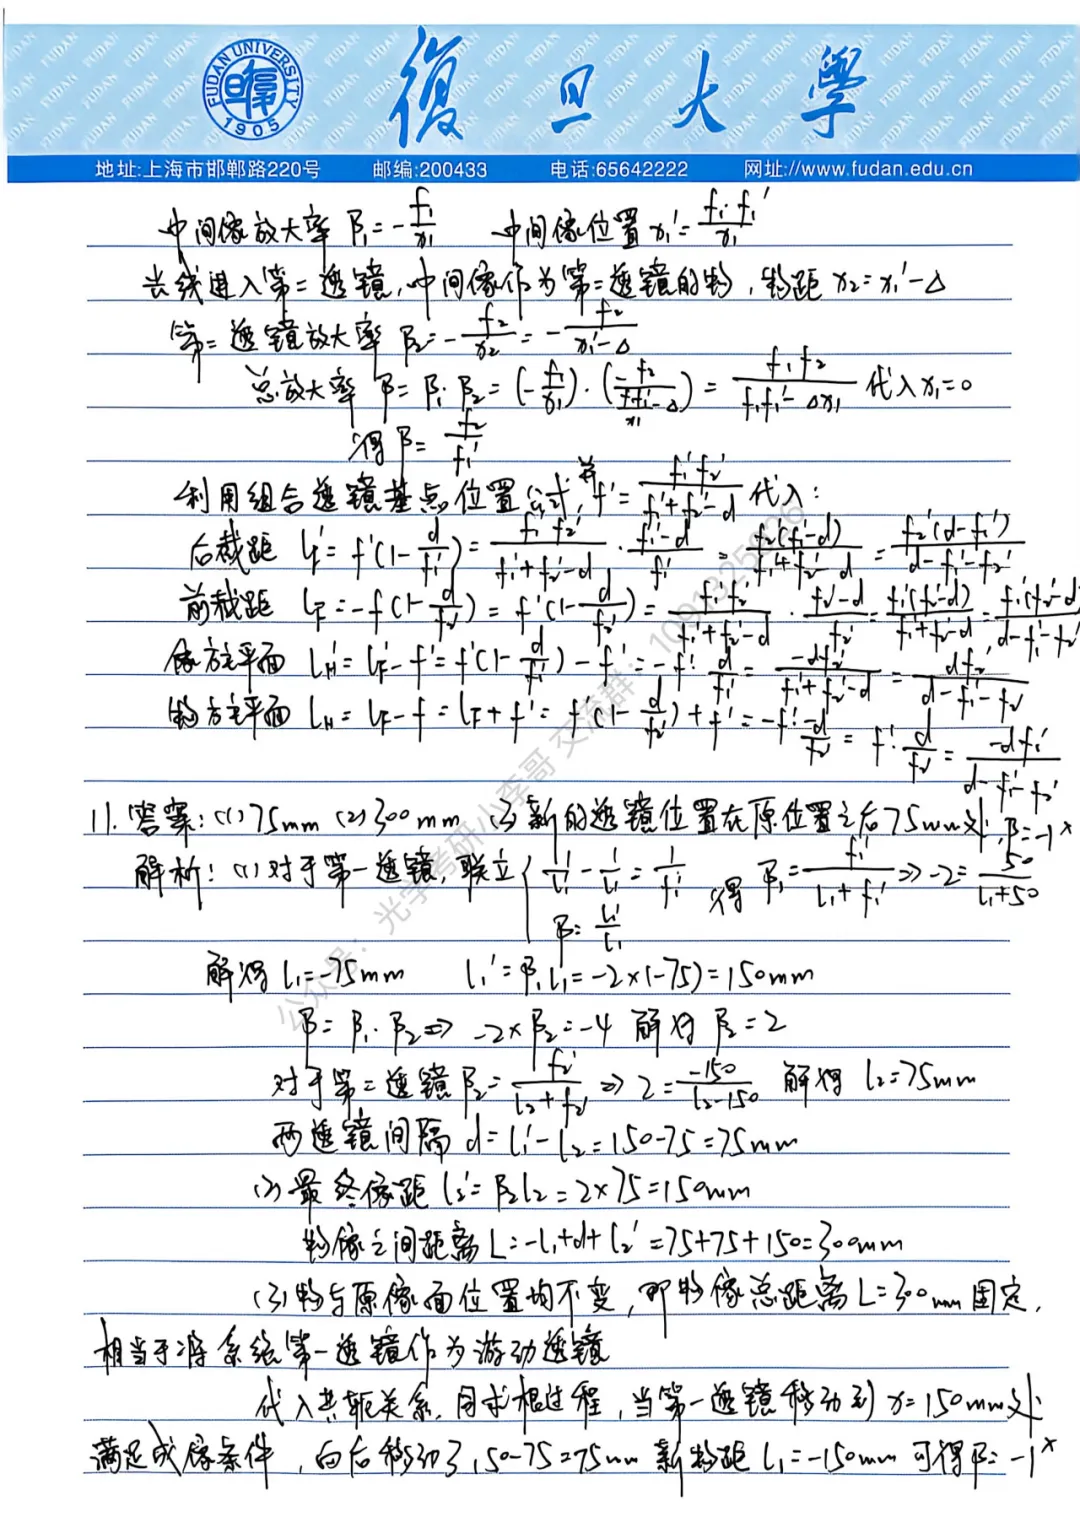 FUDAN UNIVERSITY 1905
復旦大學
地址:上海市邯郸路220号 邮编:200433 电话:65642222 网址://www.fudan.edu.cn
中间像放大率 β₁=-f₁/x₁ 中间像位置 x₁'=f₁·f₁'/x₁
光线进入第二透镜,中间像作为第二透镜的物,物距 x₂=x₁'-Δ
第二透镜放大率 β₂=-f₂/x₂=-f₂/(x₁'-Δ)
总放大率 β=β₁·β₂=(-f₁/x₁)·(-f₂/(f₁f₁'/x₁-Δ))=f₁f₂/(f₁f₁'-Δx₁) 代入 x₁=0
得 β=f₂/f₁'
利用组合透镜基点位置公式,并 f'=f₁'f₂'/(f₁'+f₂'-d) 代入:
后截距 l_F'=f'(1-d/f₁')=f₁'f₂'/(f₁'+f₂'-d)·(f₁'-d)/f₁'=f₂'(f₁'-d)/(f₁'+f₂'-d)=f₂'(d-f₁')/(d-f₁'-f₂')
前截距 l_F=-f(1-d/f₂')=f'(1-d/f₂')=f₁'f₂'/(f₁'+f₂'-d)·(f₂'-d)/f₂'=f₁'(f₂'-d)/(f₁'+f₂'-d)=f₁'(f₂'-d)/(d-f₁'-f₂')
像方主平面 l_H'=l_F'-f'=f'(1-d/f₁')-f'=-f'·d/f₁'=-df₂'/(f₁'+f₂'-d)=df₂'/(d-f₁'-f₂')
物方主平面 l_H=l_F-f=l_F+f'=f(1-d/f₂')+f'=-f'·-d/f₂'=f'·d/f₂'=-df₁'/(d-f₁'-f₂')
11.答案:(1)75mm (2)300mm (3)新的透镜位置在原位置之后75mm处,β=-1ˣ
解析:(1)对于第一透镜,联立{1/l₁'-1/l₁=1/f₁' 得 β₁=f₁'/(l₁+f₁')⇒-2=50/(l₁+50)
β=l₁'/l₁
解得 l₁=-75mm l₁'=β₁l₁=-2×(-75)=150mm
β=β₁·β₂⇒-2×β₂=-4 解得 β₂=2
对于第二透镜 β₂=f₂'/(l₂+f₂')⇒2=-150/(l₂-150) 解得 l₂=75mm
两透镜间隔 d=l₁'-l₂=150-75=75mm
(2)最终像距 l₂'=β₂l₂=2×75=150mm
物像之间距离 L=-l₁+d+l₂'=75+75+150=300mm
(3)物与原像面位置均不变,即物像总距离 L=300mm 固定,
相当于将系统第一透镜作为游动透镜
代入共轭关系,用求根过程,当第一透镜移动到 x=150mm处
满足成像条件,向后移动了150-75=75mm 新物距 l₁=-150mm 可得 β=-1ˣ
公众号:光学考研小李哥 交流群:1091325926